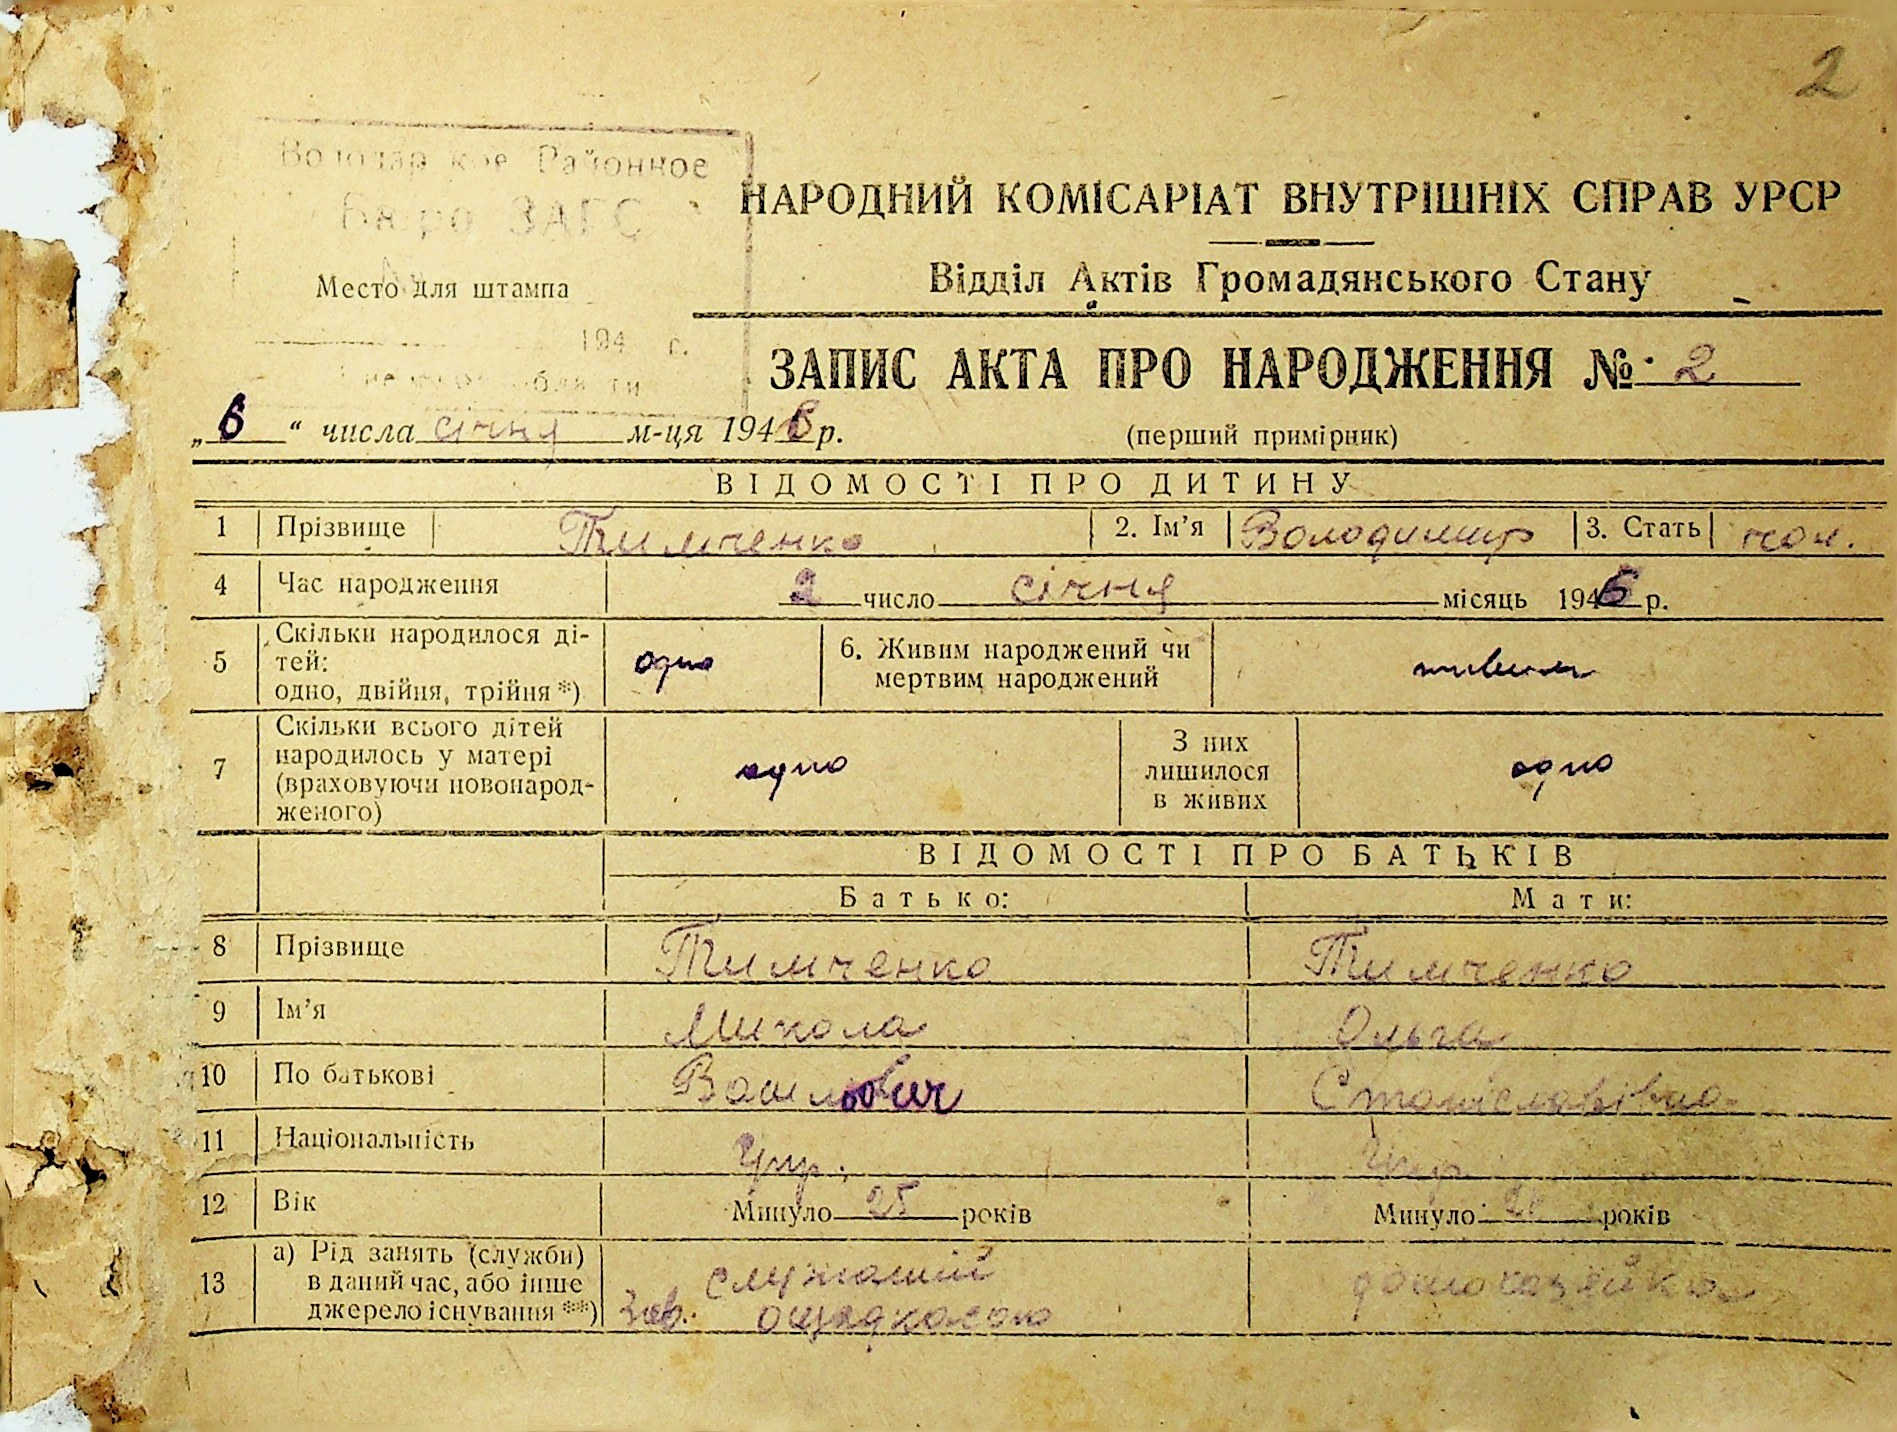 2
Районное
Бюро ЗАГС
НАРОДНИЙ КОМІСАРІАТ ВНУТРІШНІХ СПРАВ УРСР
Відділ Актів Громадянського Стану
Место для штампа
194 г.
ЗАПИС АКТА ПРО НАРОДЖЕННЯ № 2
„6“ числа січня м-ця 1946 р. (перший примірник)
ВІДОМОСТІ ПРО ДИТИНУ
1 Прізвище Тимченко 2. Ім’я Володимир 3. Стать чол.
4 Час народження 2 число січня місяць 1946 р.
5 Скільки народилося ді-
тей:
одно, двійня, трійня *) одно 6. Живим народжений чи
мертвим народжений живим
7 Скільки всього дітей
народилось у матері
(враховуючи новонарод-
женого) одно З них
лишилося
в живих одно
ВІДОМОСТІ ПРО БАТЬКІВ
Батько: Мати:
8 Прізвище Тимченко Тимченко
9 Ім’я Микола Ольга
10 По батькові Васильович Станіславівна
11 Національність Укр. Укр.
12 Вік Минуло 25 років Минуло років
13 а) Рід занять (служби)
в даний час, або інше
джерело існування **) служащий
Зав. ощадкасою домохазейка